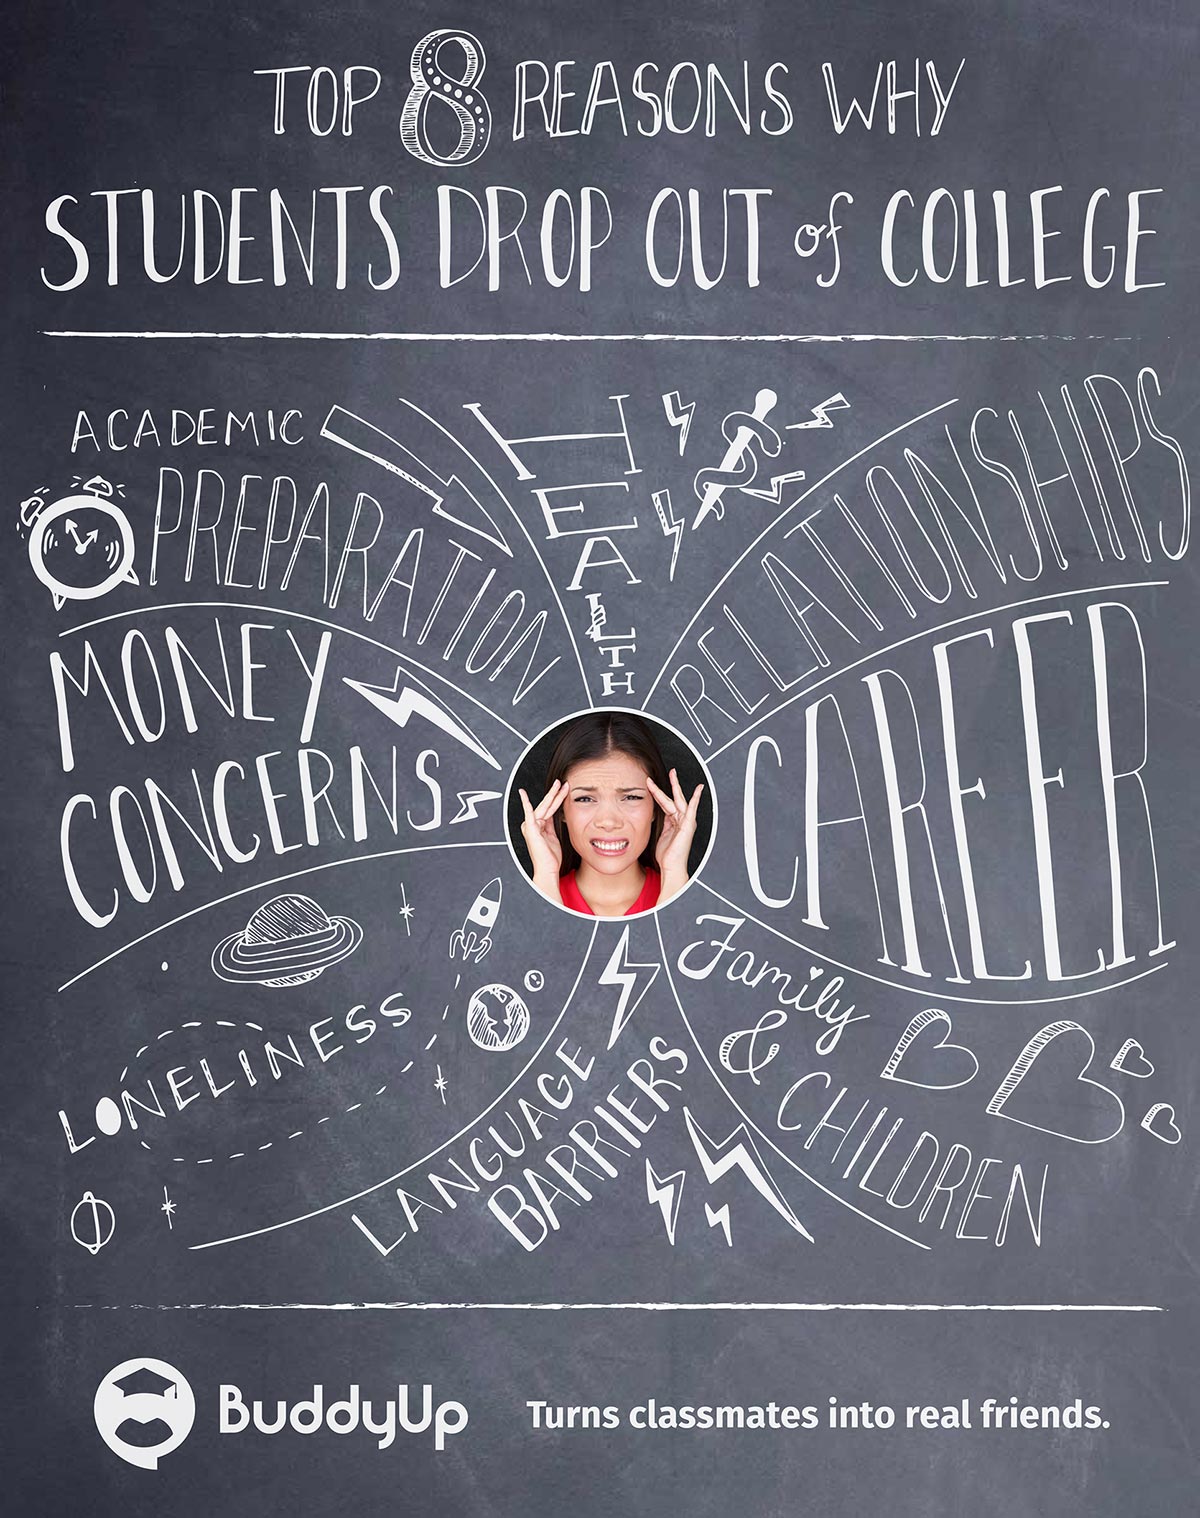 TOP 8 REASONS WHY
STUDENTS DROP OUT of COLLEGE
ACADEMIC
PREPARATION
HEALTH
RELATIONSHIPS
MONEY
CONCERNS
CAREER
LONELINESS
LANGUAGE
BARRIERS
Family
&
CHILDREN
BuddyUp
Turns classmates into real friends.